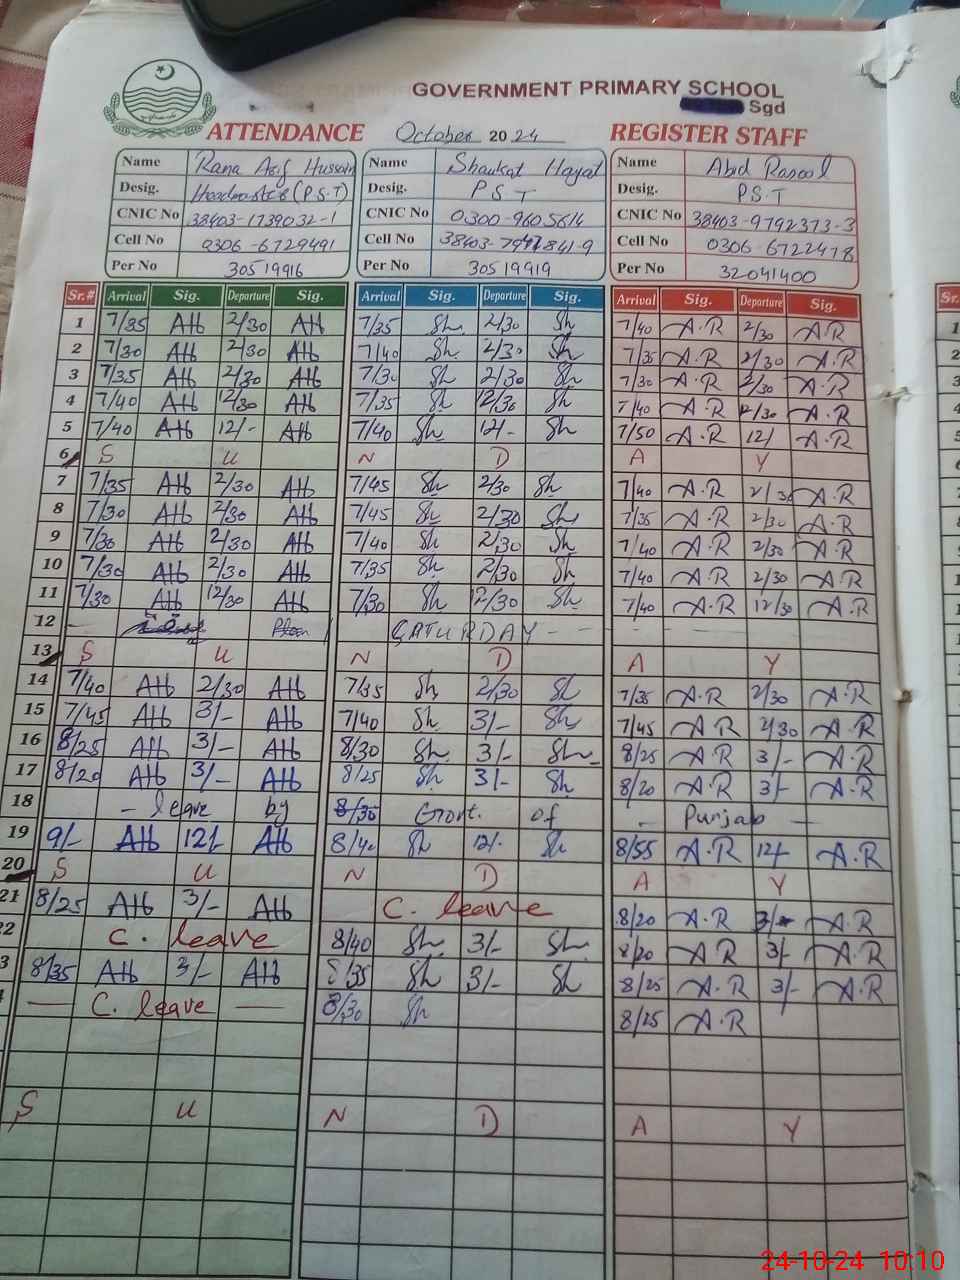 GOVERNMENT PRIMARY SCHOOL
Sgd
ATTENDANCE October 2024 REGISTER STAFF
Name Rana Asif Hussain Name Shaukat Hayat Name Abid Rasool
Desig. Headmaster (P.S.T) Desig. P S T Desig. P.S.T
CNIC No 38403-1739032-1 CNIC No 0300-9605614 CNIC No 38403-9792373-3
Cell No 0306-6729491 Cell No Cell No 0306-6722478
Per No 30519916 Per No 30519919 Per No 32041400
Sr.# Arrival Sig. Departure Sig. Arrival Sig. Departure Sig. Arrival Sig. Departure Sig.
1 7/35 AH 2/30 AH 7/35 Sh. 2/30 Sh 7/40 A.R 2/30 A.R
2 7/30 AH 2/30 AH 7/40 Sh 2/30 Sh 7/35 A.R 2/30 A.R
3 7/35 AH 2/30 AH 7/30 Sh 2/30 Sh 7/30 A.R 2/30 A.R
4 7/40 AH 12/30 AH 7/35 Sh 12/30 Sh 7/40 A.R 12/30 A.R
5 7/40 AH 12/- AH 7/40 Sh 12/- Sh 7/50 A.R 12/ A.R
6 S U N D A Y
7 7/35 AH 2/30 AH 7/45 Sh 2/30 Sh 7/40 A.R 2/30 A.R
8 7/30 AH 2/30 AH 7/45 Sh 2/30 Sh 7/35 A.R 2/30 A.R
9 7/30 AH 2/30 AH 7/40 Sh 2/30 Sh 7/40 A.R 2/30 A.R
10 7/30 AH 2/30 AH 7/35 Sh 2/30 Sh 7/40 A.R 2/30 A.R
11 7/30 AH 12/30 AH 7/30 Sh 12/30 Sh 7/40 A.R 12/30 A.R
12 - SATURDAY - - - - - -
13 S U N D A Y
14 7/40 AH 2/30 AH 7/35 Sh 2/30 Sh 7/35 A.R 2/30 A.R
15 7/45 AH 3/- AH 7/40 Sh 3/- Sh 7/45 A.R 2/30 A.R
16 8/25 AH 3/- AH 8/30 Sh 3/- Sh 8/25 A.R 3/- A.R
17 8/20 AH 3/- AH 8/25 Sh 3/- Sh 8/20 A.R 3/- A.R
18 - leave by 8/30 Govt. of - Punjab -
19 9/- AH 12/- AH 8/40 Sh 12/- Sh 8/55 A.R 12/- A.R
20 S U N D A Y
21 8/25 AH 3/- AH C. leave 8/20 A.R 3/- A.R
22 C. leave 8/40 Sh 3/- Sh 8/20 A.R 3/- A.R
3 8/35 AH 3/- AH 8/35 Sh 3/- Sh 8/25 A.R 3/- A.R
C. leave 8/30 Sh 8/25 A.R
S U N D A Y
24-10-24 10:10